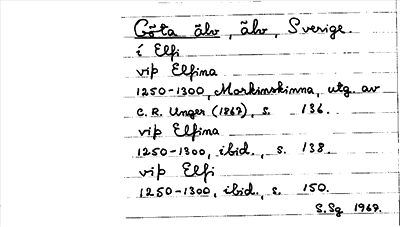 Göta älv, älv, Sverige.
í Elfi
viþ Elfina
1250-1300, Morkinskinna, utg. av
C. R. Unger (1867), s. 136.
viþ Elfina
1250-1300, ibid., s. 138.
viþ Elfi
1250-1300, ibid., s. 150.
S.Sg 1967.